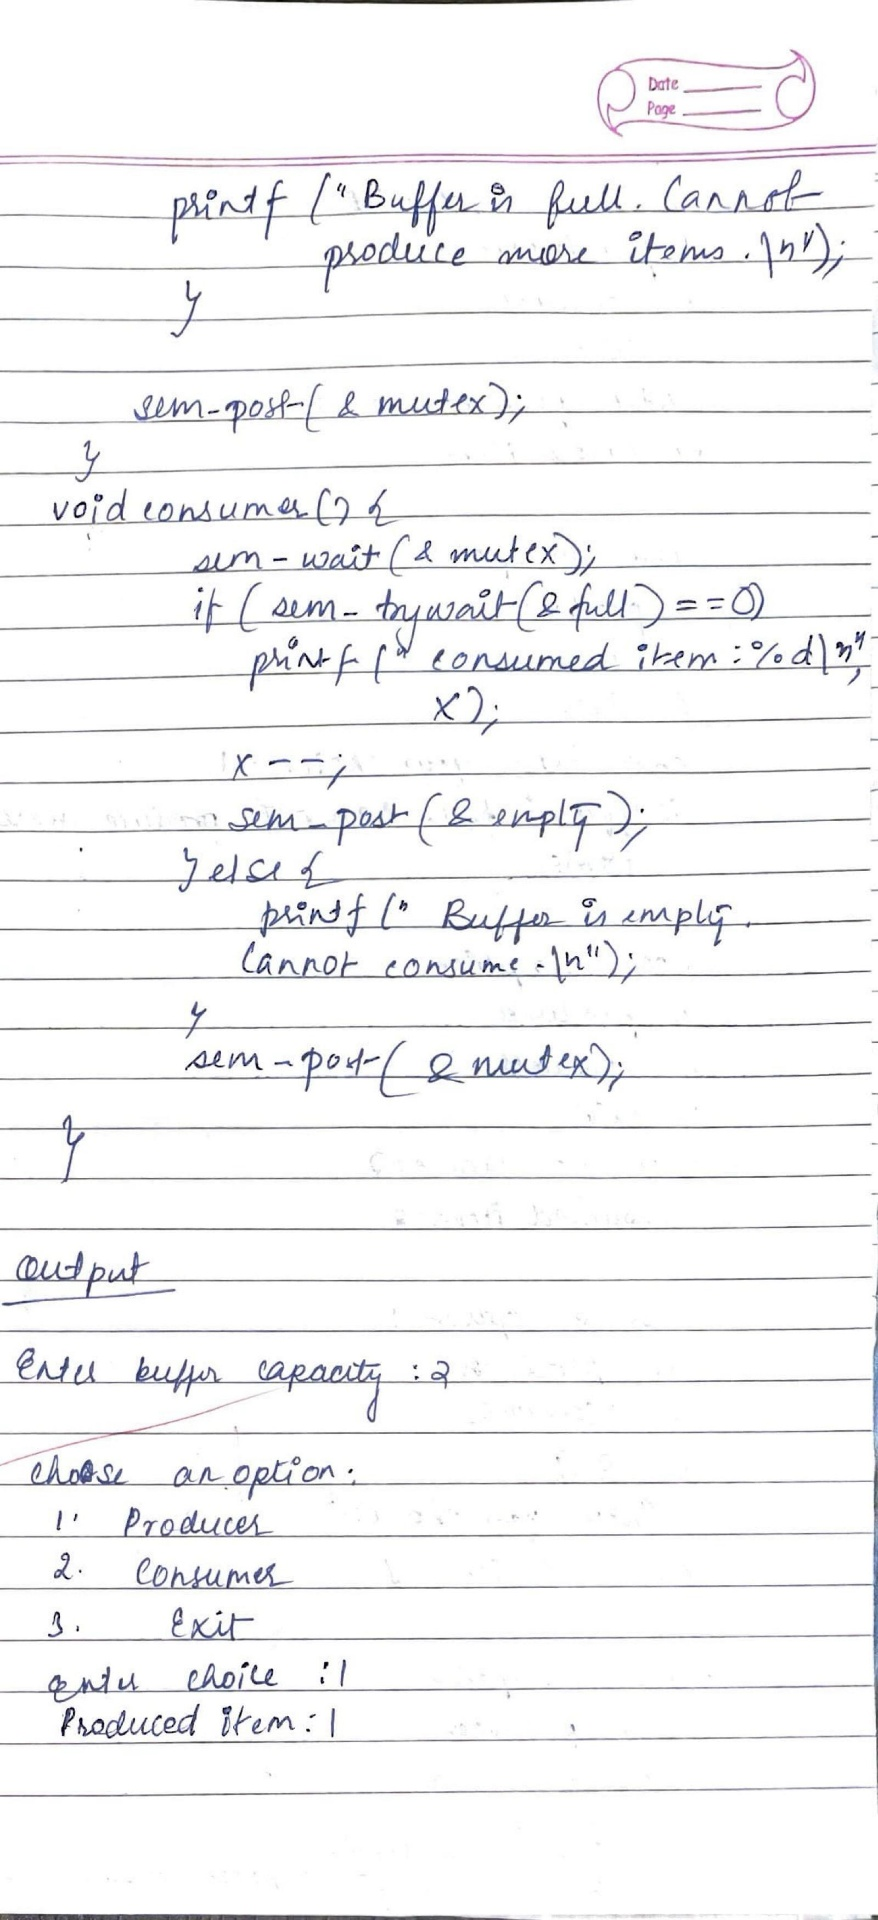 Date
Page
printf ("Buffer is full. Cannot
produce more items.\n");
}
sem-post(& mutex);
}
void consumer() {
sem-wait(& mutex);
if (sem-trywait(& full) ==0)
printf (" consumed item : %d\n",
x);
x --;
sem-post (& empty);
} else {
printf (" Buffer is empty.
Cannot consume.\n");
}
sem-post(& mutex);
}
Output
Enter buffer capacity : 2
choose an option:
1. Producer
2. Consumer
3. Exit
enter choice : 1
Produced item : 1